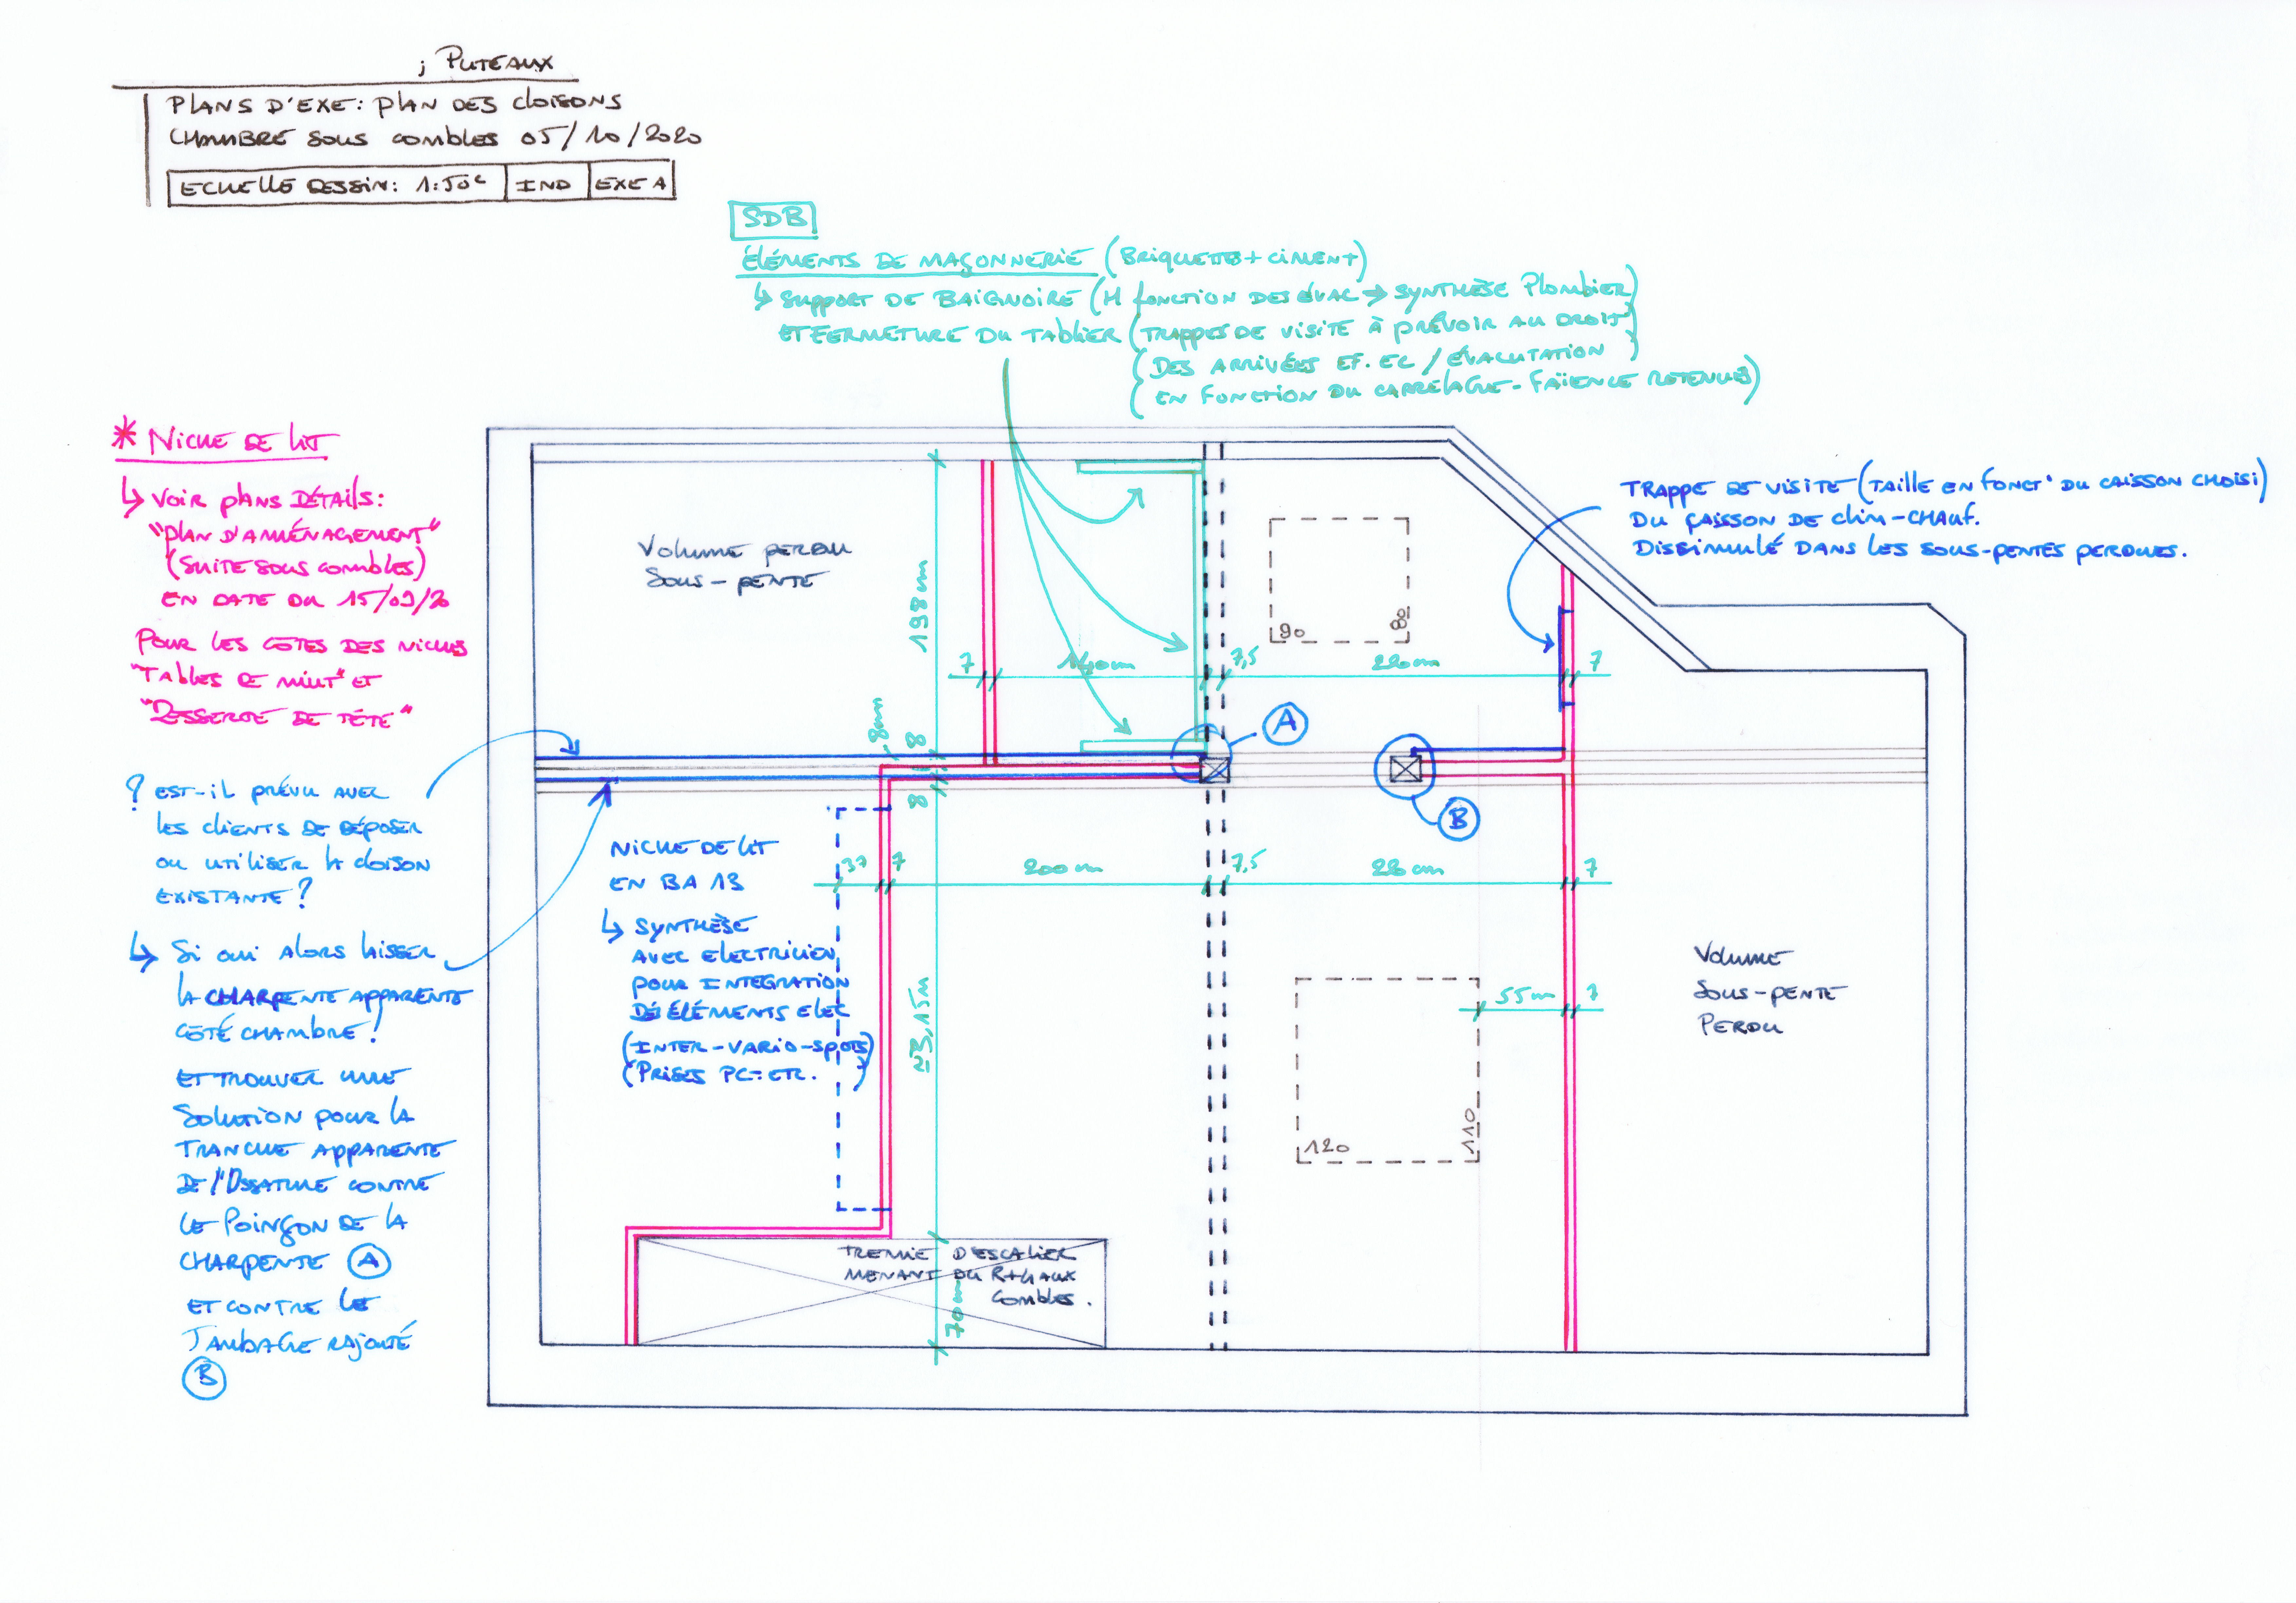 ; PUTEAUX
PLANS D'EXE: PLAN DES CLOISONS
CHAMBRE SOUS COMBLES 05/10/2020
ECHELLE DESSIN: 1:50e IND EXE A
SDB
ELÉMENTS DE MAÇONNERIE (BRIQUETTES + CIMENT)
↳ SUPPORT DE BAIGNOIRE (H FONCTION DES ÉVAC → SYNTHÈSE PLOMBIER)
ET FERMETURE DU TABLIER (TRAPPES DE VISITE À PRÉVOIR AU DROIT)
(DES ARRIVÉES EF. EC / ÉVACUTATION)
(EN FONCTION DU CARRELAGE - FAÏENCE RETENUES)
* NICHE DE LIT
↳ VOIR PLANS DÉTAILS:
"PLAN D'AMÉNAGEMENT"
(SUITE SOUS COMBLES)
EN DATE DU 15/09/20
POUR LES COTES DES NICHES
"TABLES DE NUIT" ET
"DESSERTE DE TÊTE"
? EST-IL PRÉVU AVEC
LES CLIENTS DE DÉPOSER
OU UTILISER LA CLOISON
EXISTANTE?
↳ SI OUI ALORS LAISSER
LA CHARPENTE APPARENTE
CÔTÉ CHAMBRE!
ET TROUVER UNE
SOLUTION POUR LA
TRANCHE APPARENTE
DE L'OSSATURE CONTRE
LE POINÇON DE LA
CHARPENTE A
ET CONTRE LE
JAMBAGE RAJOUTÉ
B
TRAPPE DE VISITE (TAILLE EN FONCT° DU CAISSON CHOISI)
DU CAISSON DE CLIM-CHAUF.
DISSIMULÉ DANS LES SOUS-PENTES PERDUES.
VOLUME PERDU
SOUS-PENTE
198cm
90
80
7
140cm
7,5
220cm
7
8cm
8
A
B
8
NICHE DE LIT
EN BA 13
↳ SYNTHÈSE
AVEC ELECTRICIEN
POUR INTEGRATION
DES ÉLÉMENTS ELEC
(INTER-VARIO-SPOTS)
(PRISES PC-ETC. )
37
7
200cm
7,5
220cm
7
≃3,15m
55cm
7
120
110
VOLUME
SOUS-PENTE
PERDU
TREMIE D'ESCALIER
MENANT DU R+4 AUX
COMBLES.
70cm